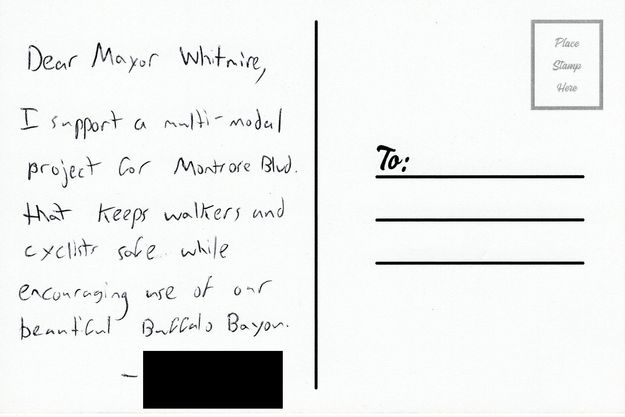 Dear Mayor Whitmire,
I support a multi-modal
project for Montrose Blvd.
that keeps walkers and
cyclists safe while
encouraging use of our
beautiful Buffalo Bayou.
-
Place
Stamp
Here
To: